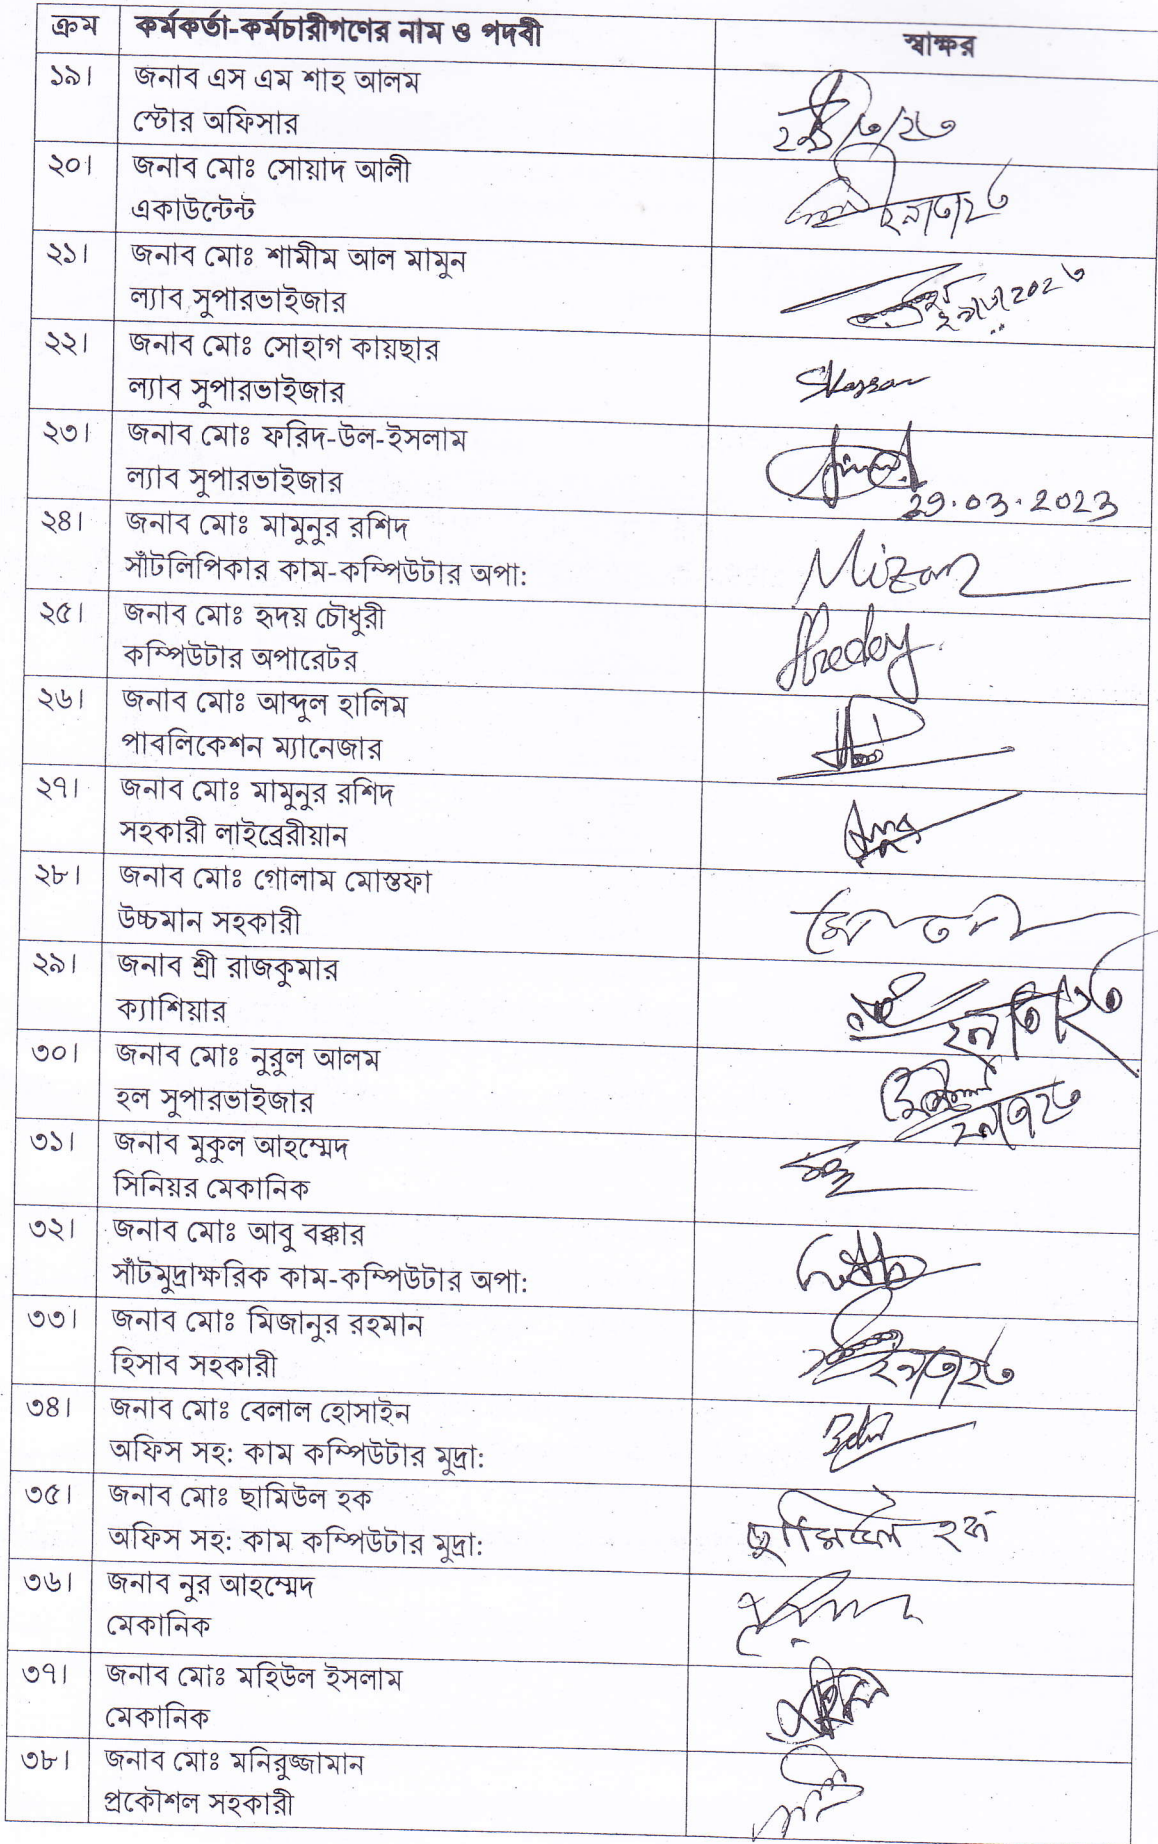 ক্রম কর্মকর্তা-কর্মচারীগণের নাম ও পদবী স্বাক্ষর
১৯। জনাব এস এম শাহ আলম
স্টোর অফিসার
২০। জনাব মোঃ সোয়াদ আলী
একাউন্টেন্ট
২১। জনাব মোঃ শামীম আল মামুন
ল্যাব সুপারভাইজার
২২। জনাব মোঃ সোহাগ কায়ছার
ল্যাব সুপারভাইজার
২৩। জনাব মোঃ ফরিদ-উল-ইসলাম
ল্যাব সুপারভাইজার
29.03.2023
২৪। জনাব মোঃ মামুনুর রশিদ
সাঁটলিপিকার কাম-কম্পিউটার অপা: Mizan
২৫। জনাব মোঃ হৃদয় চৌধুরী
কম্পিউটার অপারেটর Hredoy
২৬। জনাব মোঃ আব্দুল হালিম
পাবলিকেশন ম্যানেজার
২৭। জনাব মোঃ মামুনুর রশিদ
সহকারী লাইব্রেরীয়ান
২৮। জনাব মোঃ গোলাম মোস্তফা
উচ্চমান সহকারী
২৯। জনাব শ্রী রাজকুমার
ক্যাশিয়ার
৩০। জনাব মোঃ নুরুল আলম
হল সুপারভাইজার
৩১। জনাব মুকুল আহম্মেদ
সিনিয়র মেকানিক
৩২। জনাব মোঃ আবু বক্কার
সাঁটমুদ্রাক্ষরিক কাম-কম্পিউটার অপা:
৩৩। জনাব মোঃ মিজানুর রহমান
হিসাব সহকারী
৩৪। জনাব মোঃ বেলাল হোসাইন
অফিস সহ: কাম কম্পিউটার মুদ্রা:
৩৫। জনাব মোঃ ছামিউল হক
অফিস সহ: কাম কম্পিউটার মুদ্রা: ছামিউল হক
৩৬। জনাব নুর আহম্মেদ
মেকানিক
৩৭। জনাব মোঃ মহিউল ইসলাম
মেকানিক
৩৮। জনাব মোঃ মনিরুজ্জামান
প্রকৌশল সহকারী